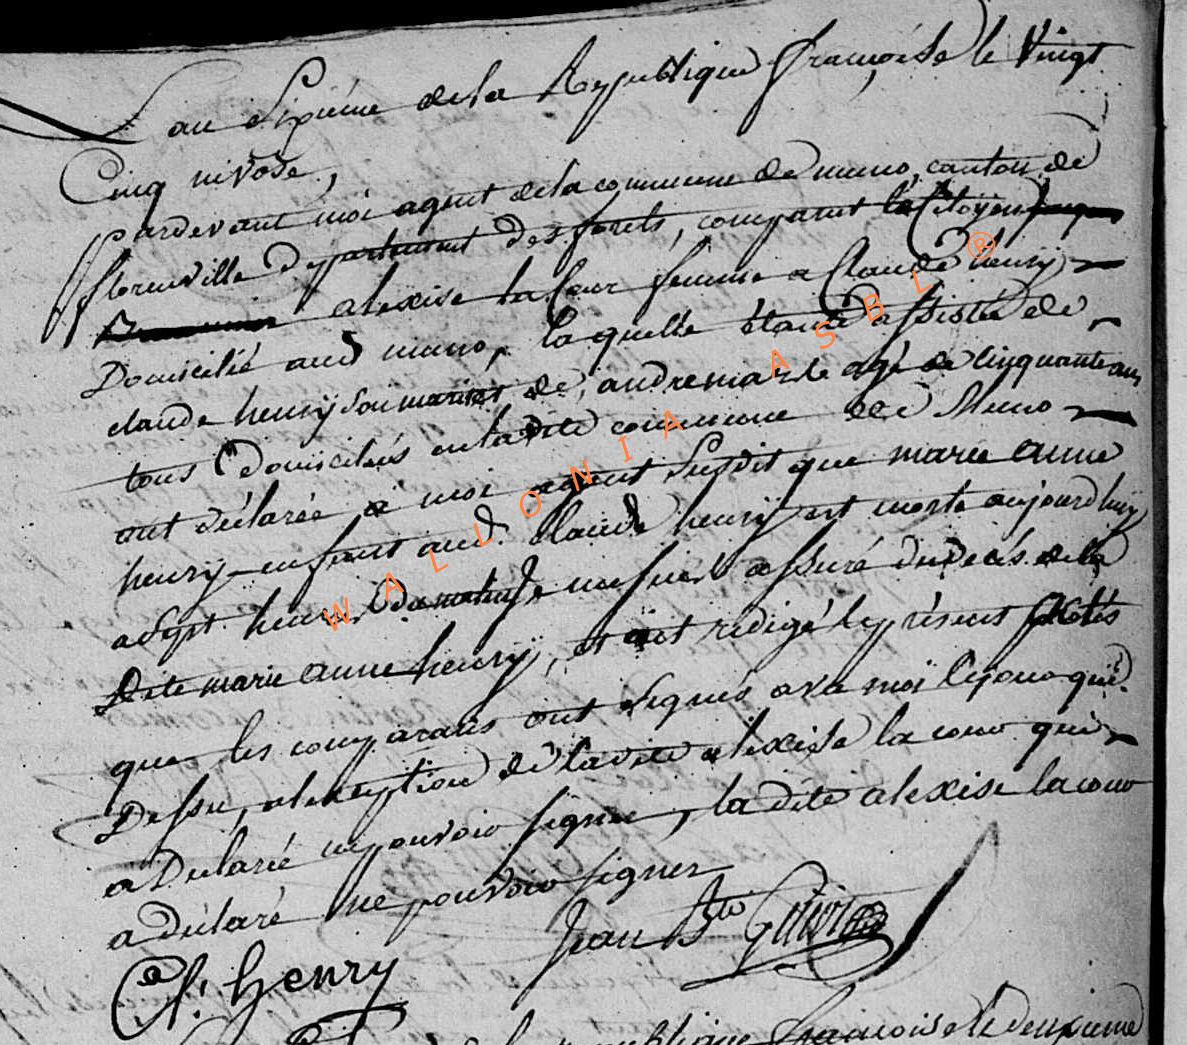 L'an Sixiéme de la Republique françoise le Vingt
Cinq nivose,
Pardevant moi agent de la commune de muno, canton de
florenville Departement des forets, comparut la Citoyen
alexise la Cour femme a Claude henry
Domicilié aud muno, la quelle étant assistée de
claude henry son marit et de andre agé de Cinquante ans
tous Domiciliés en la dite commune de Muno
ont déclarée a moi agent Susdit que marie anne
henry enfant aud Claude henry est morte aujourdhuy
a Sept heures Du matin Je me suis assuré du Decés de la
Dite marie anne henry, et ait redigé le présent
que les comparans ont Signés avec moi le jour que
Dessu, a lexception de la dite alexise la cour qui
a Declaré ne pouvoir Signer, la dite alexise la cour
a déclaré ne pouvoir signer
Jean Bte
Cl. henry
françoise le deuxieme
WALLONIA ASBL ®